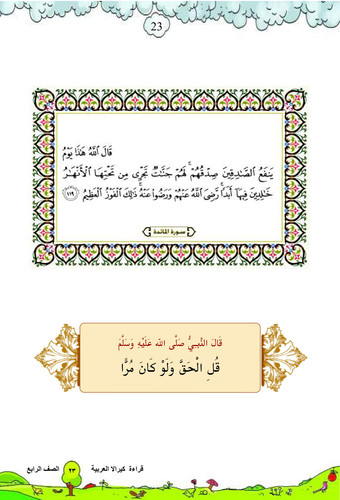 23
قَالَ اللَّهُ هَٰذَا يَوْمُ
يَنفَعُ الصَّٰدِقِينَ صِدْقُهُمْ ۚ لَهُمْ جَنَّٰتٌ تَجْرِى مِن تَحْتِهَا الْأَنْهَٰرُ
خَٰلِدِينَ فِيهَا أَبَدًا ۚ رَّضِىَ اللَّهُ عَنْهُمْ وَرَضُوا عَنْهُ ۚ ذَٰلِكَ الْفَوْزُ الْعَظِيمُ ١١٩
سورة المائدة
قَالَ النَّبِيُّ صَلَّى الله عَلَيْهِ وَسَلَّمْ
قُلِ الْحَقَّ وَلَوْ كَانَ مُرًّا
قراءة كيرالا العربية ٢٣ الصف الرابع